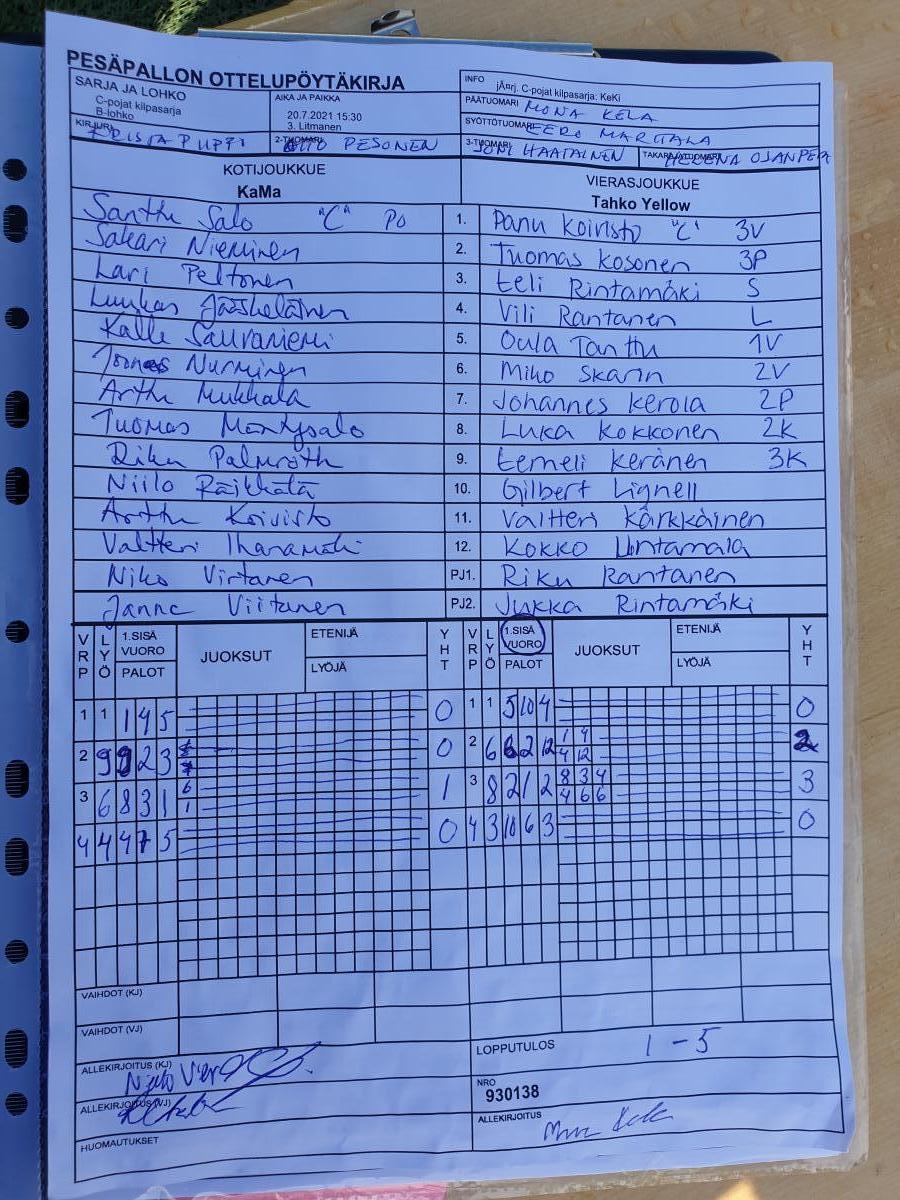 PESÄPALLON OTTELUPÖYTÄKIRJA
SARJA JA LOHKO
C-pojat kilpasarja
B-lohko
AIKA JA PAIKKA
20.7.2021 15:30
3. Litmanen
INFO
jÃ¤rj. C-pojat kilpasarja: KeKi
PÄÄTUOMARI MONA KELA
SYÖTTÖTUOMARI EERO MARTTALA
KIRJURI KRISTA PUPPI
2-TUOMARI PESONEN
3-TUOMARI JONI HAATAINEN
TAKARAJATUOMARI HELENA OJANPERÄ
KOTIJOUKKUE
KaMa
VIERASJOUKKUE
Tahko Yellow
Santtu Salo "C" PO 1. Panu Koivisto "C" 3V
Sakari Nieminen 2. Tuomas Kosonen 3P
Lari Peltonen 3. Eeli Rintamäki S
Luukas Jääskeläinen 4. Vili Rantanen L
Kalle Sauvaniemi 5. Oula Tanttu 1V
Joonas Nurminen 6. Miko Skarin 2V
Arttu Mukkala 7. Johannes Kerola 2P
Tuomas Mäntysalo 8. Luka Kokkonen 2K
Riku Palmroth 9. Eemeli Keränen 3K
Niilo Räikkälä 10. Gilbert Lignell
Arttu Koivisto 11. Valtteri Kärkkäinen
Valtteri Iharamäki 12. Kokko Uintamala
Niko Virtanen PJ1. Riku Rantanen
Janne Viitanen PJ2. Jukka Rintamäki
VRP LYÖ 1.SISÄ VUORO PALOT JUOKSUT ETENIJÄ LYÖJÄ YHT VRP LYÖ 1.SISÄ VUORO PALOT JUOKSUT ETENIJÄ LYÖJÄ YHT
1 1 1 4 5 0 1 1 5 10 4 0
2 9 9 2 3 0 2 6 6 2 12 1 9 2
4 12
3 6 8 3 1 6 1 3 8 2 1 2 8 3 4 3
1 4 6 6
4 4 4 7 5 0 4 3 10 6 3 0
VAIHDOT (KJ)
VAIHDOT (VJ)
ALLEKIRJOITUS (KJ)
LOPPUTULOS 1 - 5
ALLEKIRJOITUS (VJ)
NRO
930138
HUOMAUTUKSET
ALLEKIRJOITUS